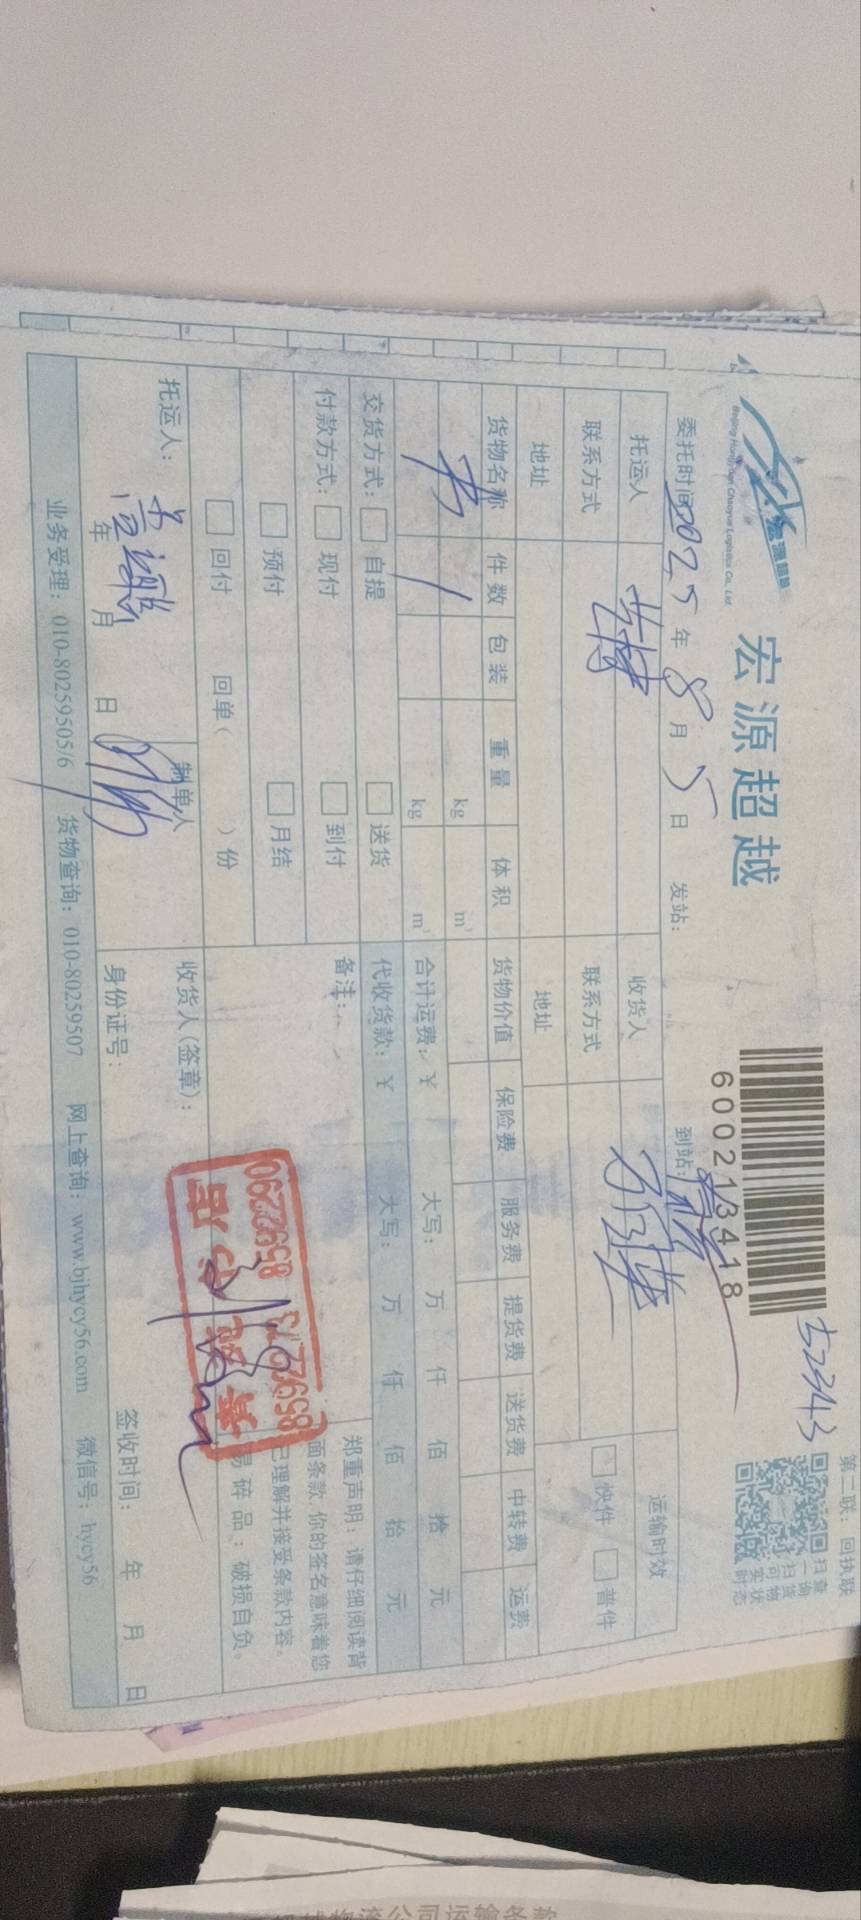 第二联：回执联
扫一扫 查询货物实时状态
52343
宏源超越
宏源超越
Beijing Hongyuan Chaoyue Logistics Co., Ltd.
6002113418
委托时间 2025 年 8 月 5 日 发站： 到站：
托运人 收货人 运输时效
联系方式 联系方式 快件 普件
地址 地址
货物名称 件数 包装 重量 体积 货物价值 保险费 服务费 提货费 送货费 中转费 运费
1 kg m³
kg m³ 合计运费：￥ 大写： 万 仟 佰 拾 元
交货方式： 自提 送货 代收货款：￥ 大写： 万 仟 佰 拾 元
付款方式： 现付 到付 备注： 郑重声明：请仔细阅读背
预付 月结 面条款，你的签名意味着您
已理解并接受条款内容。
回付 回单（ ）份 易碎品：破损自负。
托运人： 制单人 收货人（签章）：
年 月 日 身份证号： 签收时间： 年 月 日
业务受理：010-80259505/6 货物查询：010-80259507 网上查询：www.bjhycy56.com 微信号：hycy56